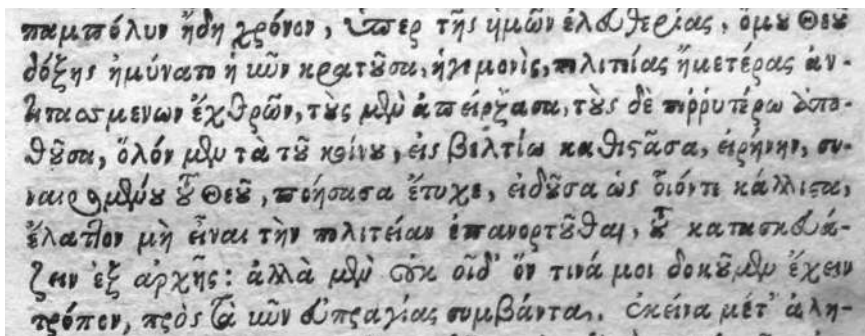 παμπόλυν ἤδη χρόνον, ὑπερ τῆς ἡμῶν ἐλευθερίας, ὁμοῦ Θεοῦ
δόξης ἠμύνατο ἡ νῦν κρατοῦσα, ἡγεμονὶς, πολιτείας ἡμετέρας ἀν-
ἔχθρῶν, τοὺς μὲν ἀπείρξασα, τοὺς δὲ πιῤῥυτέρω ἀπο-
θοῦσα, ὅλόν μὲν τὰ τοῦ κοίνου, εἰς βελτίω καθιστᾶσα, εἰρήνην, συ-
ναιρομένου τοῦ Θεοῦ, ποήσασα ἔτυχε, εἰδοῦσα ὡς οἷόντι κάλλιστα,
ἔλαττον μὴ εἶναι τὴν πολιτείαν ἐπανορτοῦσθαι, τοῦ κατασκευά-
ζειν ἐξ ἀρχῆς: ἀλλὰ μὲν οὐκ οἶδ' ὅν τινά μοι δοκοῦμεν ἔχειν
τρόπον, πρὸς τὰ νῦν εὐπραγίας συμβάντα. ἐκείνα μέτ' ἀλη-